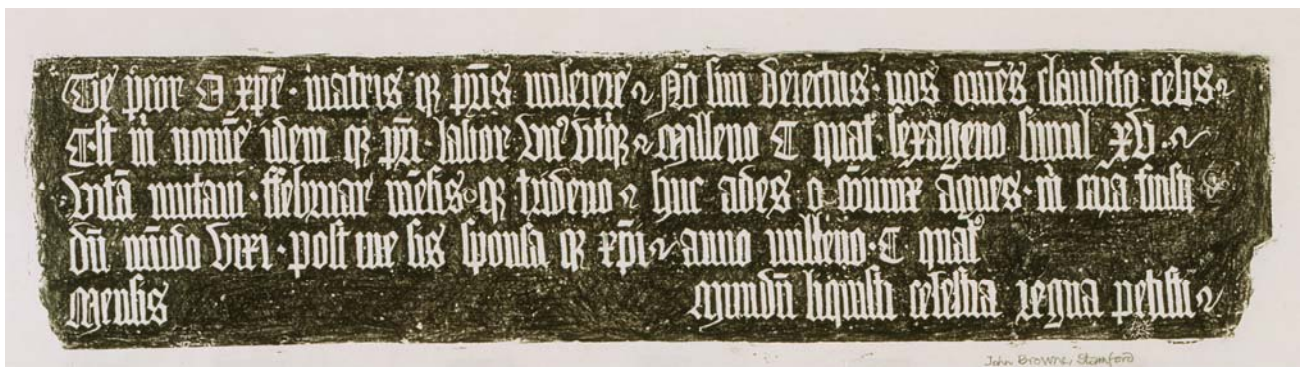 Te p̄cor O xp̄e · matris · qȝ p̄ris miserere Nō sim deiectus · nos om̄es claudito celis
Est m̄ nomē idem qȝ p̄ri · labor vn̄ vtīqȝ Milleno C quat̄ sexageno simul xv ·
vitā mutaui · ffebruar̄ mēsis qȝ trideno huc ades o cōiunx āgnes · m̄ cara fuisti
dū mūdo vixi · post me sis sponsa qȝ xp̄i anno milleno · C quat̄
Mensis mundū liquisti celestia regna petisti
John Browne, Stamford